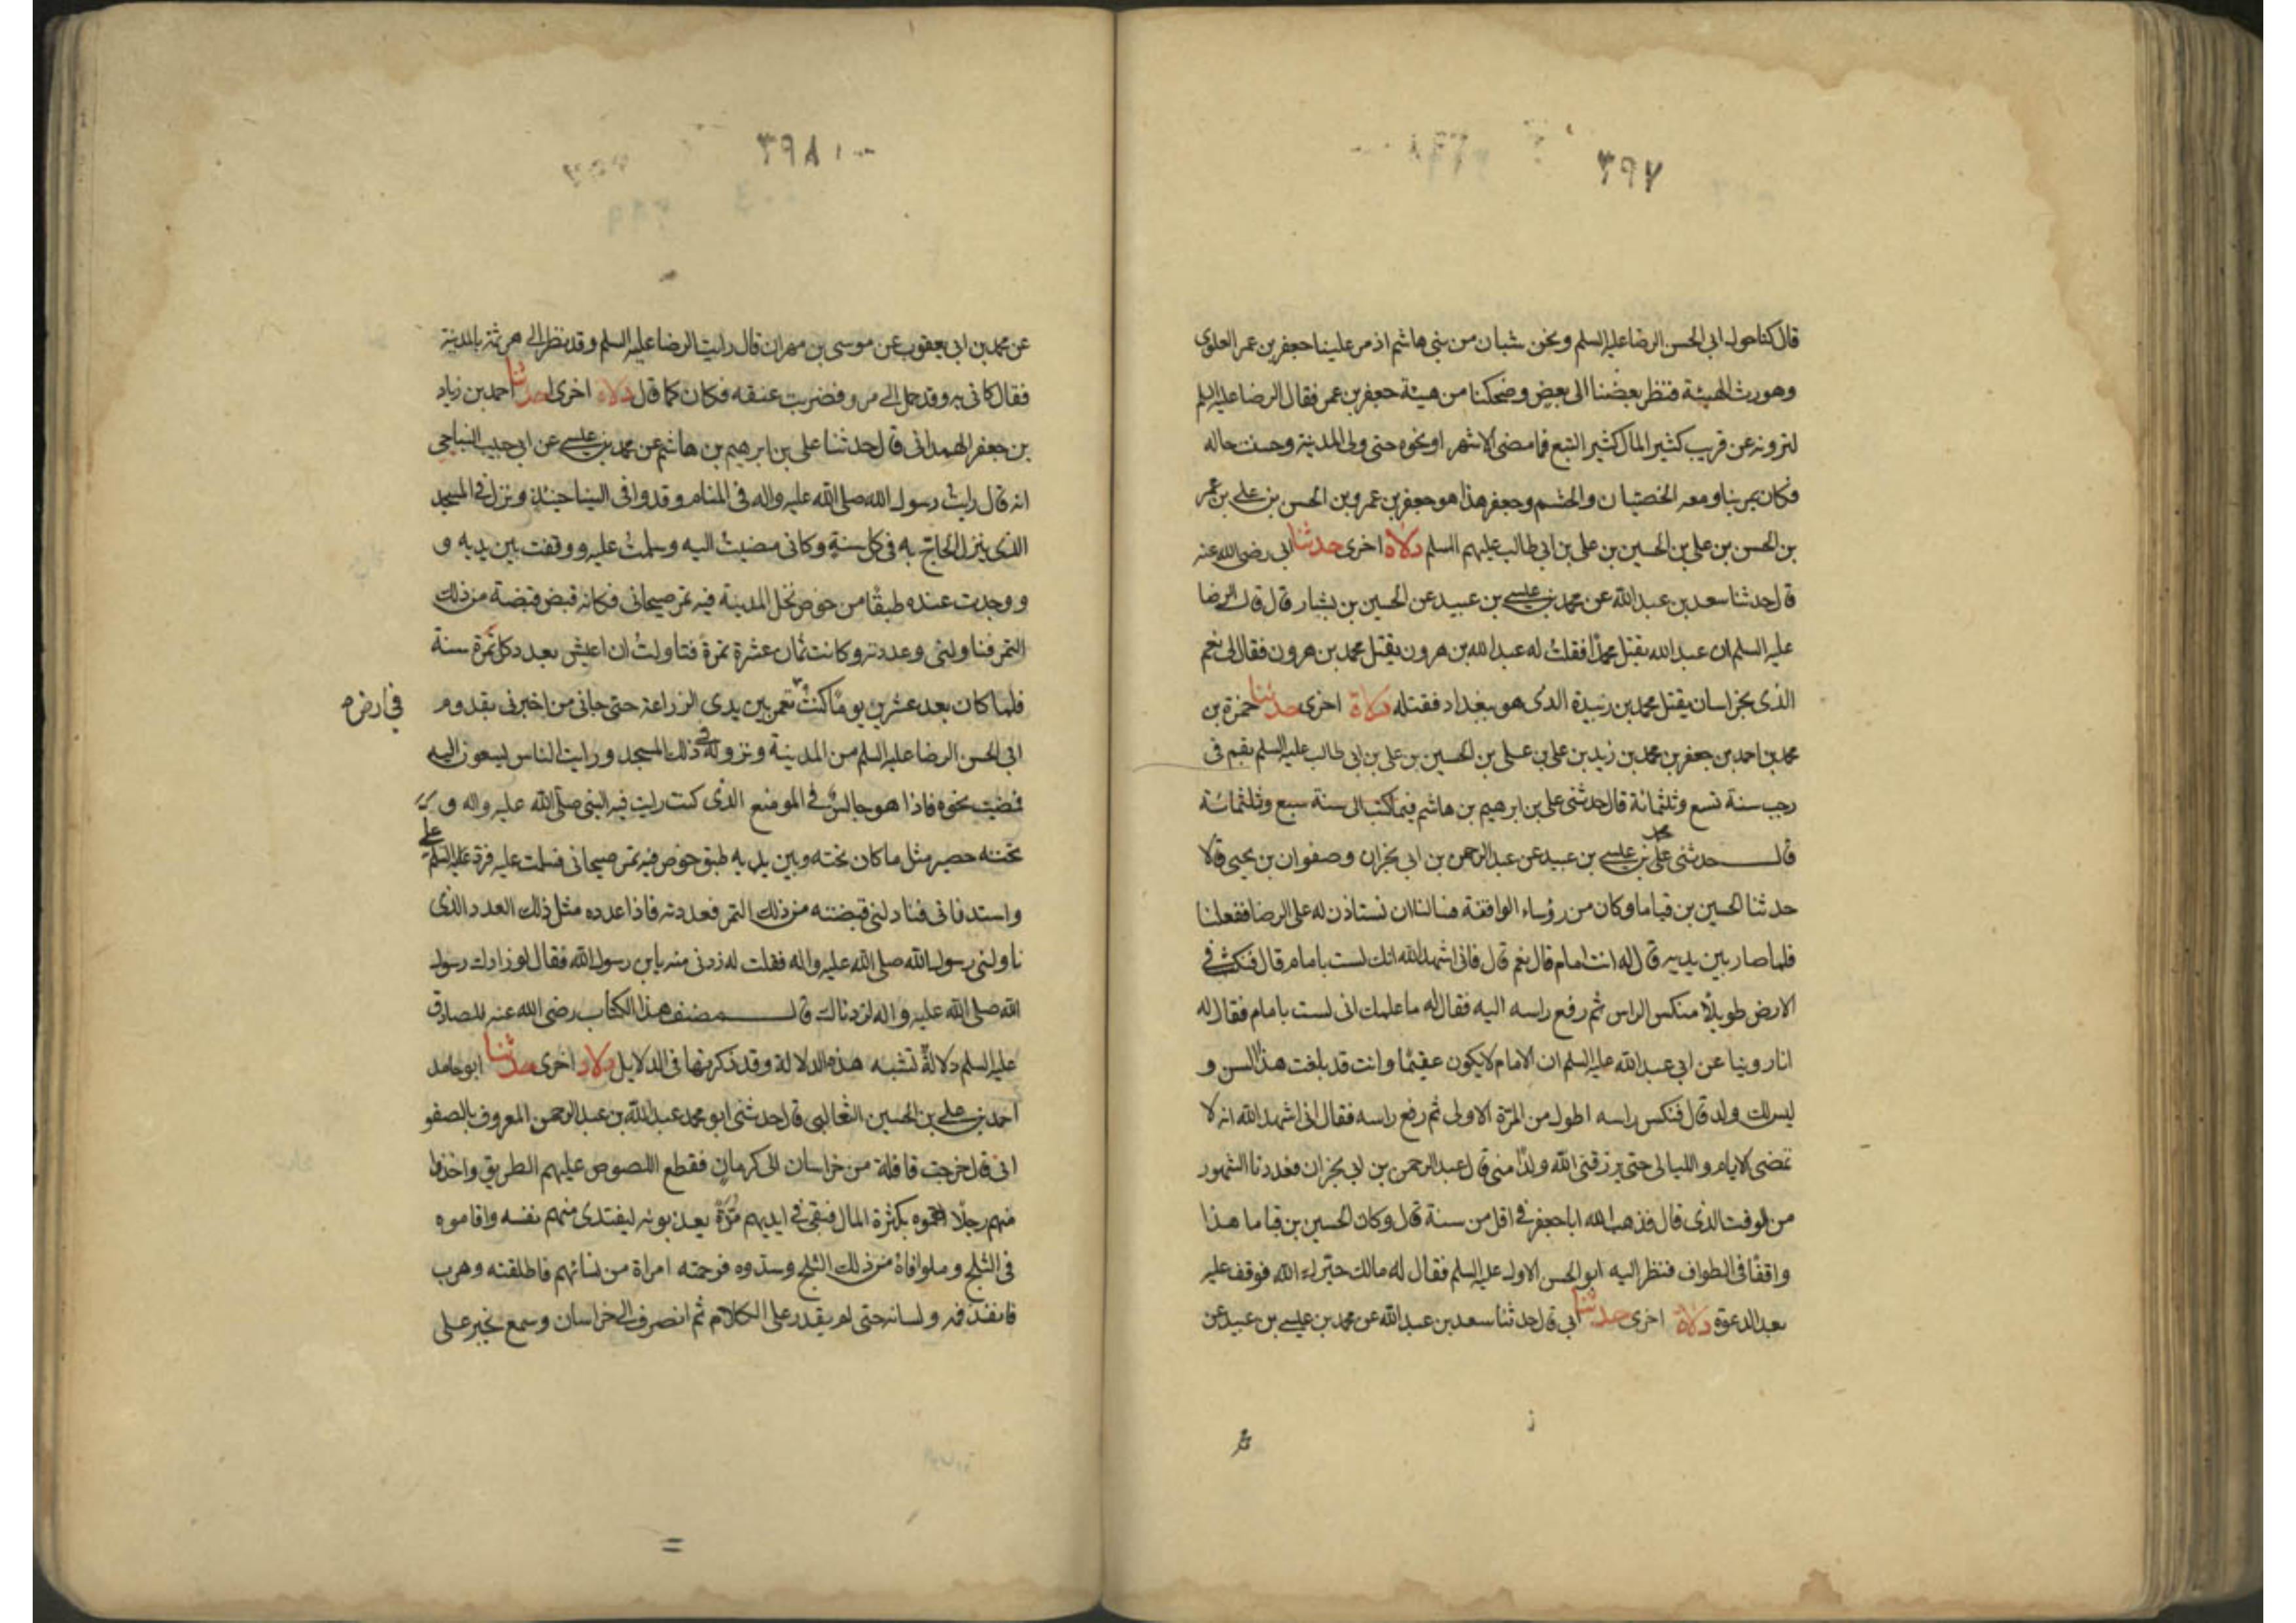 ٣٩٧
قال كنا حول ابى الحسن الرضا عليه السلم ونحن شبان من بنى هاشم اذ مر علينا جعفر بن عمر العلوى
وهو رث الهيئة فنظر بعضنا الى بعض وضحكنا من هيئة جعفر بن عمر فقال الرضا عليه السلم
لترونه عن قريب كثير المال كثير التبع فما مضى الا شهر او نحوه حتى ولى المدينة وحسنت حاله
فكان يمر بنا ومعه الخصيان والحشم وجعفر هذا هو جعفر بن عمر وبن الحسن بن على بن عمر
بن الحسن بن على بن الحسين بن على بن ابى طالب عليهم السلم دلالة اخرى حدثنا ابى رضى الله عنه
قال حدثنا سعد بن عبد الله عن محمد بن عيسى بن عبيد عن الحسين بن بشار قال قال الرضا
عليه السلم ان عبد الله يقتل محمدا فقلت له عبد الله بن هرون يقتل محمد بن هرون فقال لى نعم
الذى بخراسان يقتل محمد بن زبيدة الذى هو ببغداد فقتله دلالة اخرى حدثنا حمزة بن
محمد بن احمد بن جعفر بن محمد بن زيد بن على بن على بن الحسين بن على بن ابى طالب عليه السلم بقم فى
رجب سنة تسع وثلثمائة قال حدثنى على بن ابرهيم بن هاشم فيما كتب الى سنة سبع وثلثمائة
قال حدثنى على محمد بن عيسى بن عبيد عن عبد الرحمن بن ابى نجران وصفوان بن يحيى قالا
حدثنا الحسين بن قياما وكان من رؤساء الواقفة فسالنا ان نستاذن له على الرضا ففعلنا
فلما صار بين يديه قال له انت امام قال نعم قال فانى اشهد الله انك لست بامام قال فنكث فى
الارض طويلًا منكس الراس ثم رفع راسه اليه فقال له ما علمك انى لست بامام فقال له
انا روينا عن ابى عبد الله عليه السلم ان الامام لا يكون عقيمًا وانت قد بلغت هذا السن و
ليس لك ولد قال فنكس راسه اطول من المرة الاولى ثم رفع راسه فقال انى اشهد الله انه لا
تمضى الايام والليالى حتى يرزقنى الله ولدًا منى قال عبد الرحمن بن ابى نجران فعددنا الشهور
من الوقت الذى قال فذهب الله ابا جعفر فى اقل من سنة قال وكان الحسين بن قياما هذا
واقفًا فى الطواف فنظر اليه ابو الحسن الاول عليه السلم فقال له مالك حيرك الله فوقف عليه
بعد الدعوة دلالة اخرى حدثنا ابى قال حدثنا سعد بن عبد الله عن محمد بن عيسى بن عبيد عن
٣٩٨
عن محمد بن ابى يعقوب عن موسى بن مهران قال رايت الرضا عليه السلم وقد نظر الى هرثمة بالمدينة
فقال كانى به وقد حمل الى مرو فضربت عنقه فكان كما قال دلالة اخرى حدثنا احمد بن زياد
بن جعفر الهمدانى قال حدثنا على بن ابرهيم بن هاشم عن محمد بن عيسى عن ابى حبيب النباجى
انه قال رايت رسول الله صلى الله عليه واله فى المنام وقد وافى الينا حينئذ ونزل فى المسجد
الذى ينزل الحاج به فى كل سنة وكانى مضيت اليه وسلمت عليه ووقفت بين يديه و
ووجدت عنده طبقًا من خوص نخل المدينة فيه تمر صيحانى فكانه قبض قبضة من ذلك
التمر فناولنى وعددته وكانت ثمان عشرة تمرة فتاولت ان اعيش بعدد كل تمرة سنة
فلما كان بعد عشرين يومًا كنت تعمر بين يدى الزراعة حتى جانى من اخبرنى بقدوم
فى ارض م
ابى الحسن الرضا عليه السلم من المدينة ونزوله فى ذلك المسجد ورايت الناس يسعون اليه
فمضيت نحوه فاذا هو جالس فى الموضع الذى كنت رايت فيه النبى صلى الله عليه واله و
تحته حصير مثل ما كان تحته وبين يديه طبق خوص فيه تمر صيحانى فسلمت عليه فرد على السلم
واستدنانى فناولنى قبضته من ذلك التمر فعددته فاذا عدده مثل ذلك العدد الذى
ناولنى رسول الله صلى الله عليه واله فقلت له زدنى منه يابن رسول الله فقال لو زادك رسول
الله صلى الله عليه واله لزدناك قال مصنف هذا الكتاب رضى الله عنه للصادق
عليه السلم دلالة تشبه هذه الدلالة وقد ذكرتها فى الدلايل دلالة اخرى حدثنا ابو حامد
احمد بن على بن الحسين الثعالبى قال حدثنى ابو محمد عبد الله بن عبد الرحمن المعروف بالصفو
انى قال خرجت قافلة من خراسان الى كرمان فقطع اللصوص عليهم الطريق واخذوا
منهم رجلًا اتهموه بكثرة المال فبقى فى ايديهم مدة يعذبونه ليفتدى منهم نفسه واقاموه
فى الثلج وملوا فاه من ذلك الثلج وسدوه فرحمته امراة من نسائهم فاطلقته وهرب
فانفسد فمه ولسانه حتى لم يقدر على الكلام ثم انصرف الى خراسان وسمع بخبر على